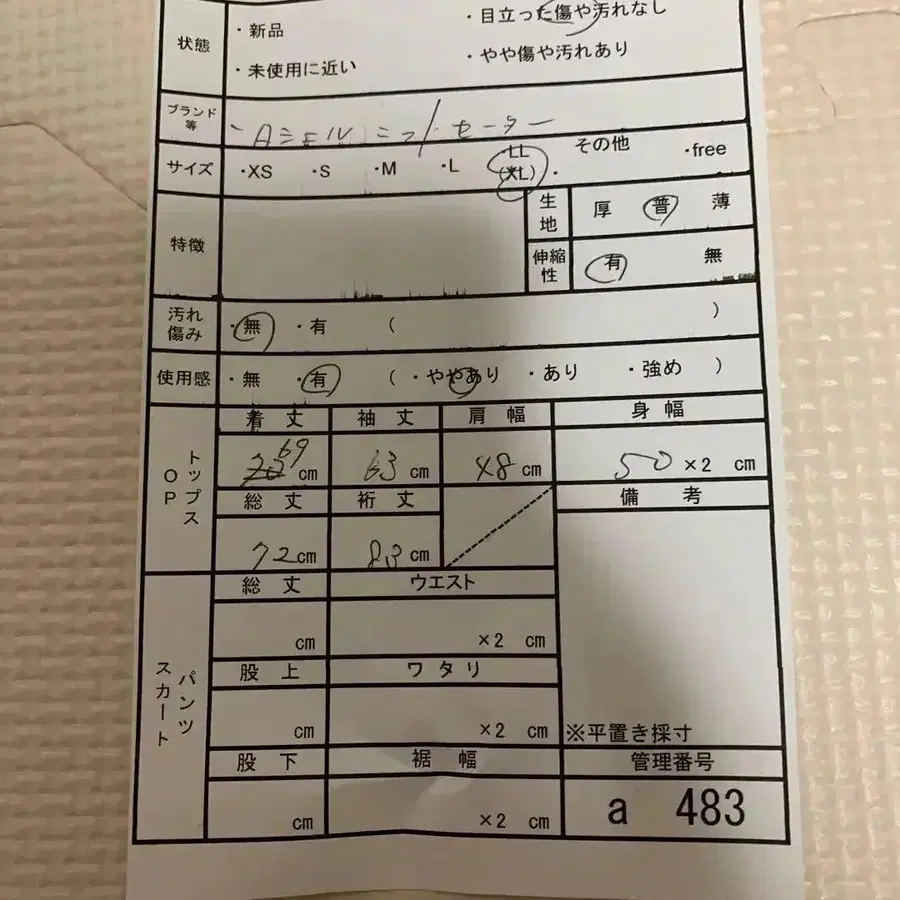 ・目立った傷や汚れなし
状態 ・新品
・やや傷や汚れあり
・未使用に近い
ブランド等 セーター
サイズ ・XS ・S ・M ・L ・LL (XL) その他 ・free
特徴 生地 厚 普 薄
伸縮性 有 無
汚れ傷み ・無 ・有 ( )
使用感 ・無 ・有 ( ・ややあり ・あり ・強め )
トップス OP 着丈 袖丈 肩幅 身幅
69 cm 63 cm 48 cm 50 ×2 cm
総丈 裄丈 備考
72 cm 83 cm
パンツ スカート 総丈 ウエスト
cm ×2 cm
股上 ワタリ
cm ×2 cm ※平置き採寸
股下 裾幅 管理番号
cm ×2 cm a 483